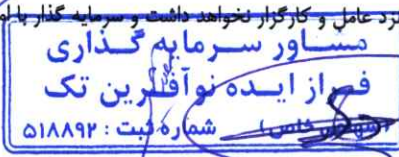 نزد عامل و کارگزار نخواهد داشت و سرمایه گذار با
مشاور سرمایه گذاری
فراز ایده نوآفرین تک
(سهامی خاص) شماره ثبت : ۵۱۸۸۹۲